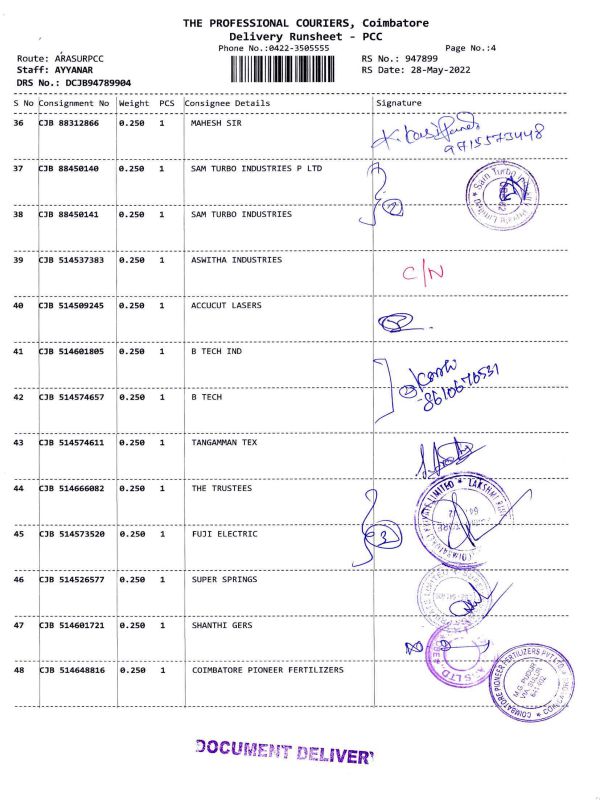 THE PROFESSIONAL COURIERS, Coimbatore
Delivery Runsheet - PCC
Phone No.:0422-3505555 Page No.:4
Route: ARASURPCC RS No.: 947899
Staff: AYYANAR RS Date: 28-May-2022
DRS No.: DCJB94789904
S No Consignment No Weight PCS Consignee Details Signature
36 CJB 88312866 0.250 1 MAHESH SIR
9715573448
37 CJB 88450140 0.250 1 SAM TURBO INDUSTRIES P LTD
Sam Turbo Private Limited
2
38 CJB 88450141 0.250 1 SAM TURBO INDUSTRIES
39 CJB 514537383 0.250 1 ASWITHA INDUSTRIES
C/N
40 CJB 514509245 0.250 1 ACCUCUT LASERS
41 CJB 514601805 0.250 1 B TECH IND
2
8610676531
42 CJB 514574657 0.250 1 B TECH
43 CJB 514574611 0.250 1 TANGAMMAN TEX
44 CJB 514666082 0.250 1 THE TRUSTEES
PRIVATE LIMITED * LAKSHMI
45 CJB 514573520 0.250 1 FUJI ELECTRIC
3
46 CJB 514526577 0.250 1 SUPER SPRINGS
47 CJB 514601721 0.250 1 SHANTHI GERS
48 CJB 514648816 0.250 1 COIMBATORE PIONEER FERTILIZERS
COIMBATORE PIONEER FERTILIZERS PVT LTD
DOCUMENT DELIVERY